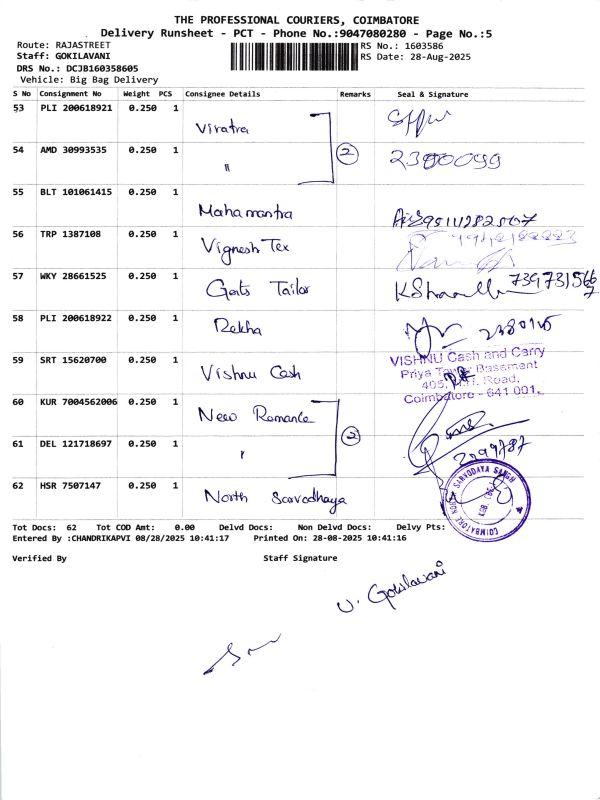 THE PROFESSIONAL COURIERS, COIMBATORE
Delivery Runsheet - PCT - Phone No.:9047080280 - Page No.:5
Route: RAJASTREET
Staff: GOKILAVANI
DRS No.: DCJB160358605
Vehicle: Big Bag Delivery
RS No.: 1603586
RS Date: 28-Aug-2025
S No Consignment No Weight PCS Consignee Details Remarks Seal & Signature
53 PLI 200618921 0.250 1
Viratra
54 AMD 30993535 0.250 1
" 2
55 BLT 101061415 0.250 1
Mahamantra
56 TRP 1387108 0.250 1
Vignesh Tex
57 WKY 28661525 0.250 1
Gents Tailor
58 PLI 200618922 0.250 1
Rekha
59 SRT 15620700 0.250 1
Vishnu Cash
VISHNU Cash and Carry
Priya Tower Basement
405, Road,
Coimbatore - 641 001.
60 KUR 7004562006 0.250 1
New Romance
61 DEL 121718697 0.250 1
" 2
62 HSR 7507147 0.250 1
North Sarvodhaya
COIMBATORE NORTH SARVODAYA SANGH
Tot Docs: 62 Tot COD Amt: 0.00 Delvd Docs: Non Delvd Docs: Delvy Pts:
Entered By :CHANDRIKAPVI 08/28/2025 10:41:17 Printed On: 28-08-2025 10:41:16
Verified By Staff Signature
V. Gokilavani